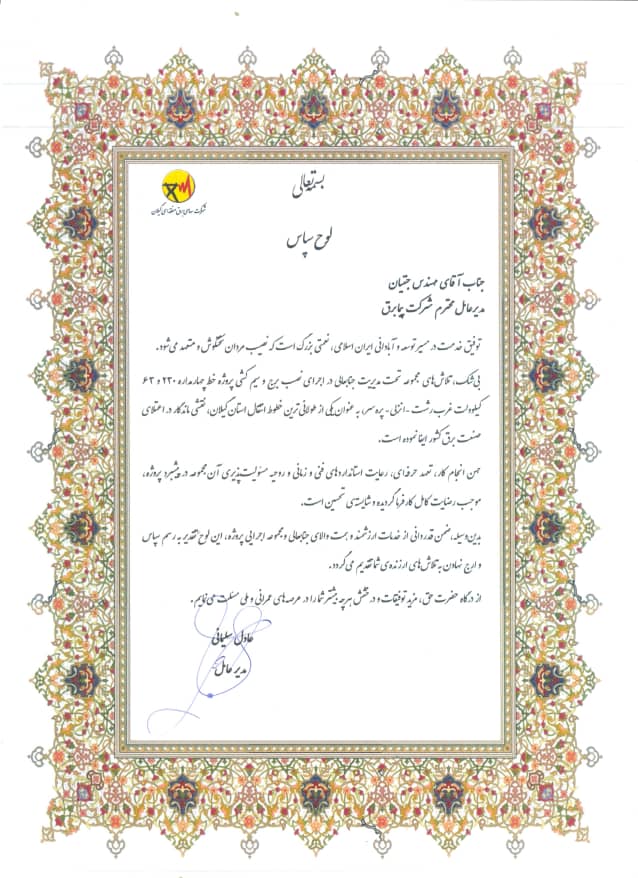 بسمه تعالی
شرکت سهامی برق منطقه ای گیلان
لوح سپاس
جناب آقای مهندس جنتیان
مدیرعامل محترم شرکت پیمابرق
توفیق خدمت در مسیر توسعه و آبادانی ایران اسلامی، نعمتی بزرگ است که نصیب مردان سختکوش و متعهد می‌شود.
بی‌شک، تلاش‌های مجموعه تحت مدیریت جنابعالی در اجرای نصب برج و سیم کشی پروژه خط چهارمداره ۲۳۰ و ۶۳
کیلوولت غرب رشت - انزلی - پره سر، به عنوان یکی از طولانی ترین خطوط انتقال استان گیلان، نقشی ماندگار در اعتلای
صنعت برق کشور ایفا نموده است.
حسن انجام کار، تعهد حرفه‌ای، رعایت استانداردهای فنی و زمانی و روحیه مسئولیت‌پذیری آن مجموعه در پیشبرد پروژه،
موجب رضایت کامل کارفرما گردیده و شایسته‌ی تحسین است.
بدین‌وسیله، ضمن قدردانی از خدمات ارزشمند و همت والای جنابعالی و مجموعه اجرایی پروژه، این لوح تقدیر به رسم سپاس
و ارج نهادن به تلاش‌های ارزنده‌ی شما تقدیم می‌گردد.
از درگاه حضرت حق، مزید توفیقات و درخشش هرچه بیشتر شما را در عرصه‌های عمرانی و ملی مسئلت می‌نمایم.
عادل سلیمانی
مدیر عامل